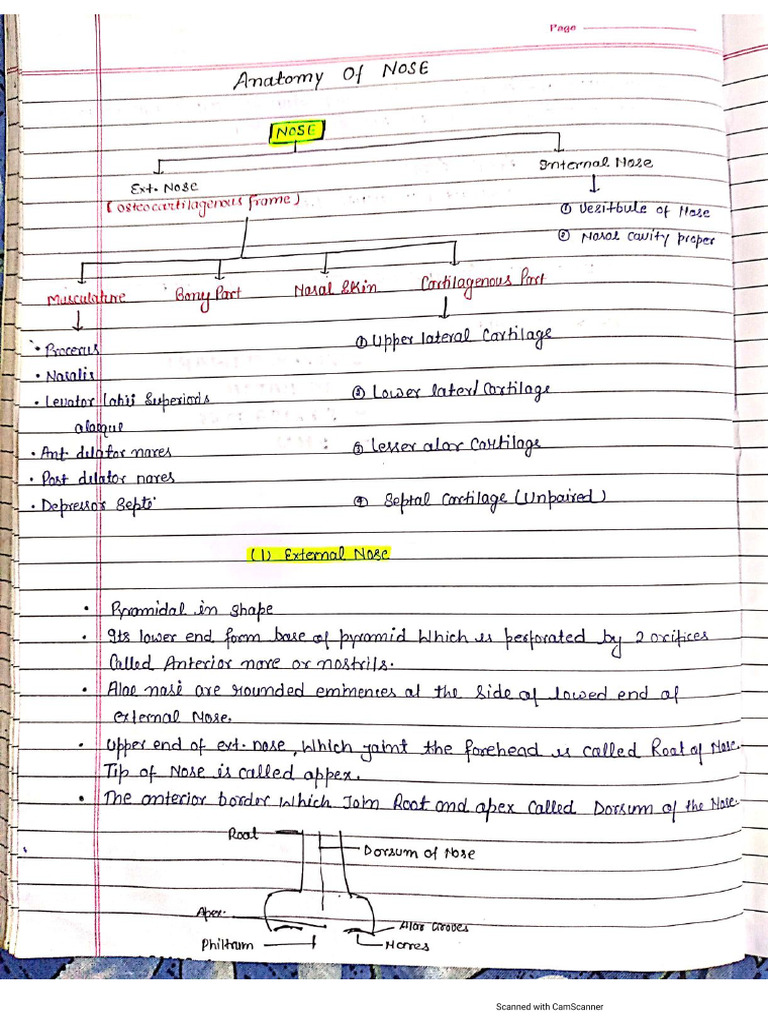 Page
Anatomy Of NOSE
NOSE
Ext. Nose
Internal Nose
(osteocartilagenous frame)
① Vesitbule of Nose
② Nasal cavity proper
Musculature
Bony Part
Nasal Skin
Cartilagenous Part
• Procerus
① Upper lateral Cartilage
• Nasalis
② Lower later/ Cartilage
• Levator labii Superiods
alaque
③ Lesser alar Cartilage
• Ant. dilator nares
• Post dilator nares
④ Septal Cartilage (Unpaired)
• Depressor Septi
(1) External Nose
• Pyramidal in shape
• Its lower end form base of pyramid Which is perforated by 2 orifices
Called Anterior nare or nostrils.
• Alae nasi are rounded eminences at the side of lowed end of
external Nose.
• Upper end of ext. nose, Which joint the forehead is called Root of Nose.
Tip of Nose is called appex.
• The anterior border Which Join Root and apex called Dorsum of the Nose.
Root
Dorsum of Nose
Apex
Alar Groves
Philtrum
Nares
Scanned with CamScanner